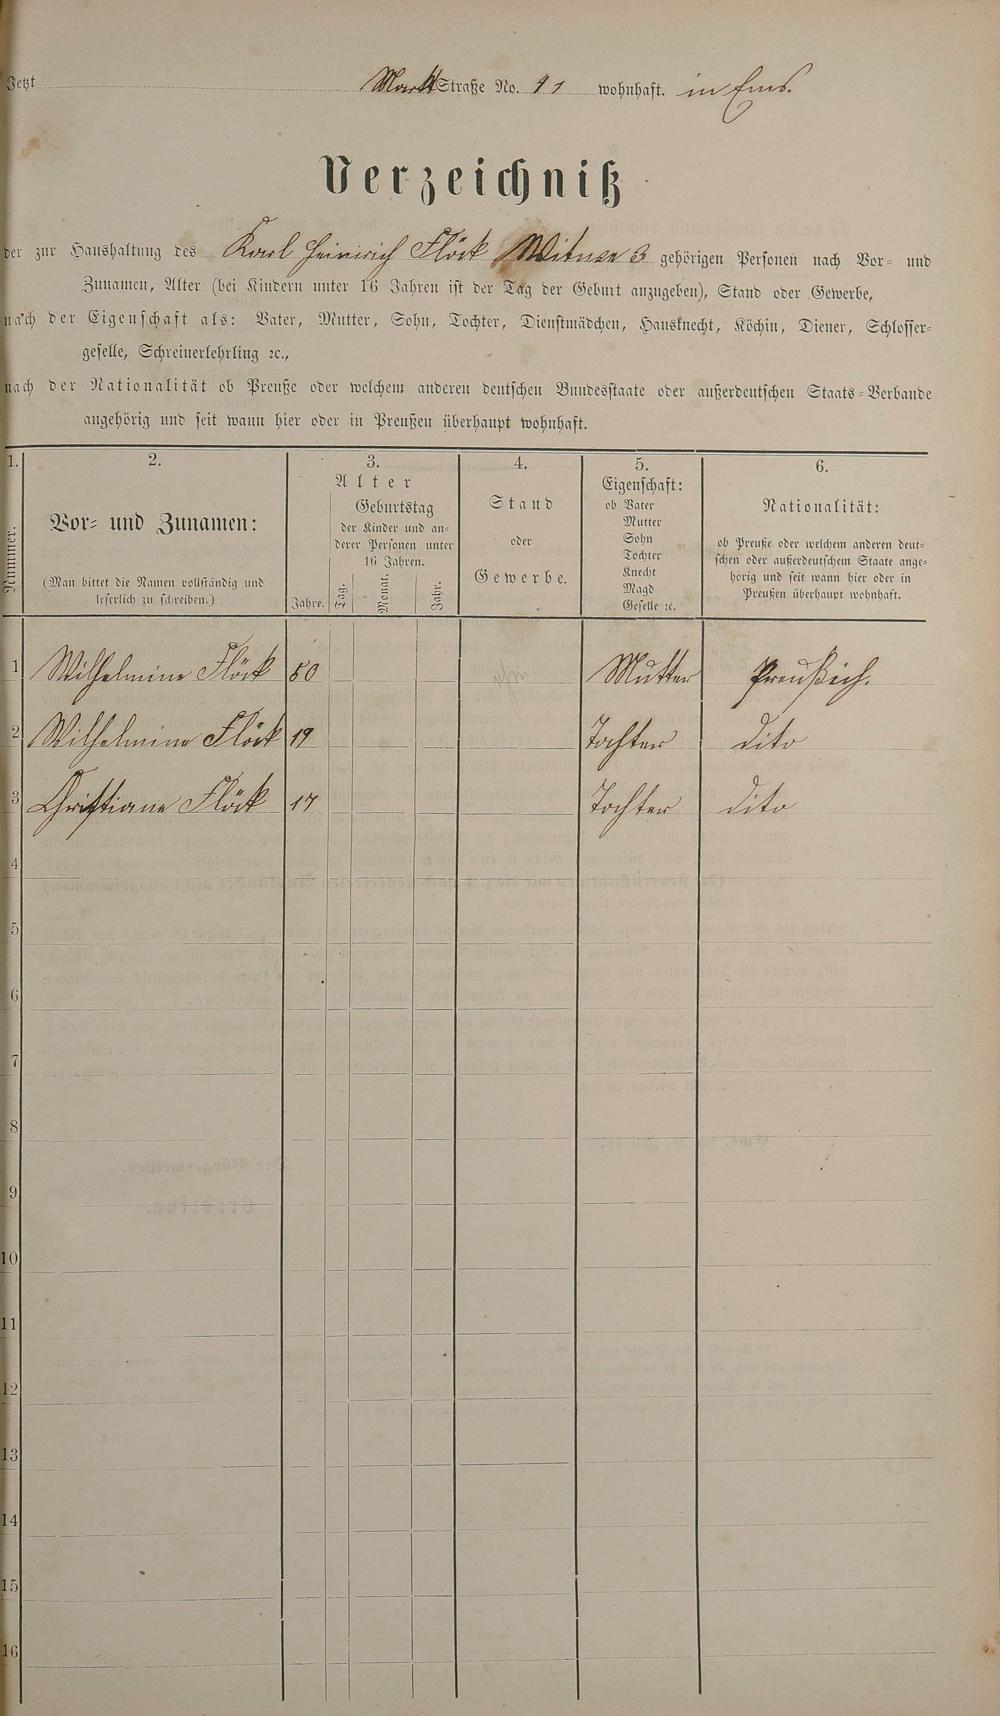 Jetzt Markt Straße No. 41 wohnhaft. in Ems.
Verzeichniß
der zur Haushaltung des Karl Heinrich Flöck Witwe 3 gehörigen Personen nach Vor- und
Zunamen, Alter (bei Kindern unter 16 Jahren ist der Tag der Geburt anzugeben), Stand oder Gewerbe,
nach der Eigenschaft als: Vater, Mutter, Sohn, Tochter, Dienstmädchen, Hausknecht, Köchin, Diener, Schlosser-
geselle, Schreinerlehrling ꝛc.,
nach der Nationalität ob Preuße oder welchem anderen deutschen Bundesstaate oder außerdeutschen Staats-Verbande
angehörig und seit wann hier oder in Preußen überhaupt wohnhaft.
1. 2. 3. 4. 5. 6.
Nummer.
Vor- und Zunamen:
(Man bittet die Namen vollständig und
leserlich zu schreiben.)
Alter
Jahre.
Geburtstag
der Kinder und an-
derer Personen unter
16 Jahren.
Tag. Monat. Jahr.
Stand
oder
Gewerbe.
Eigenschaft:
ob Vater
Mutter
Sohn
Tochter
Knecht
Magd
Geselle ꝛc.
Nationalität:
ob Preuße oder welchem anderen deut-
schen oder außerdeutschem Staate ange-
hörig und seit wann hier oder in
Preußen überhaupt wohnhaft.
1 Wilhelmine Flöck 50 Mutter Preußich.
2 Wilhelmine Flöck 19 Tochter dito
3 Christiane Flöck 17 Tochter dito
4
5
6
7
8
9
10
11
12
13
14
15
16